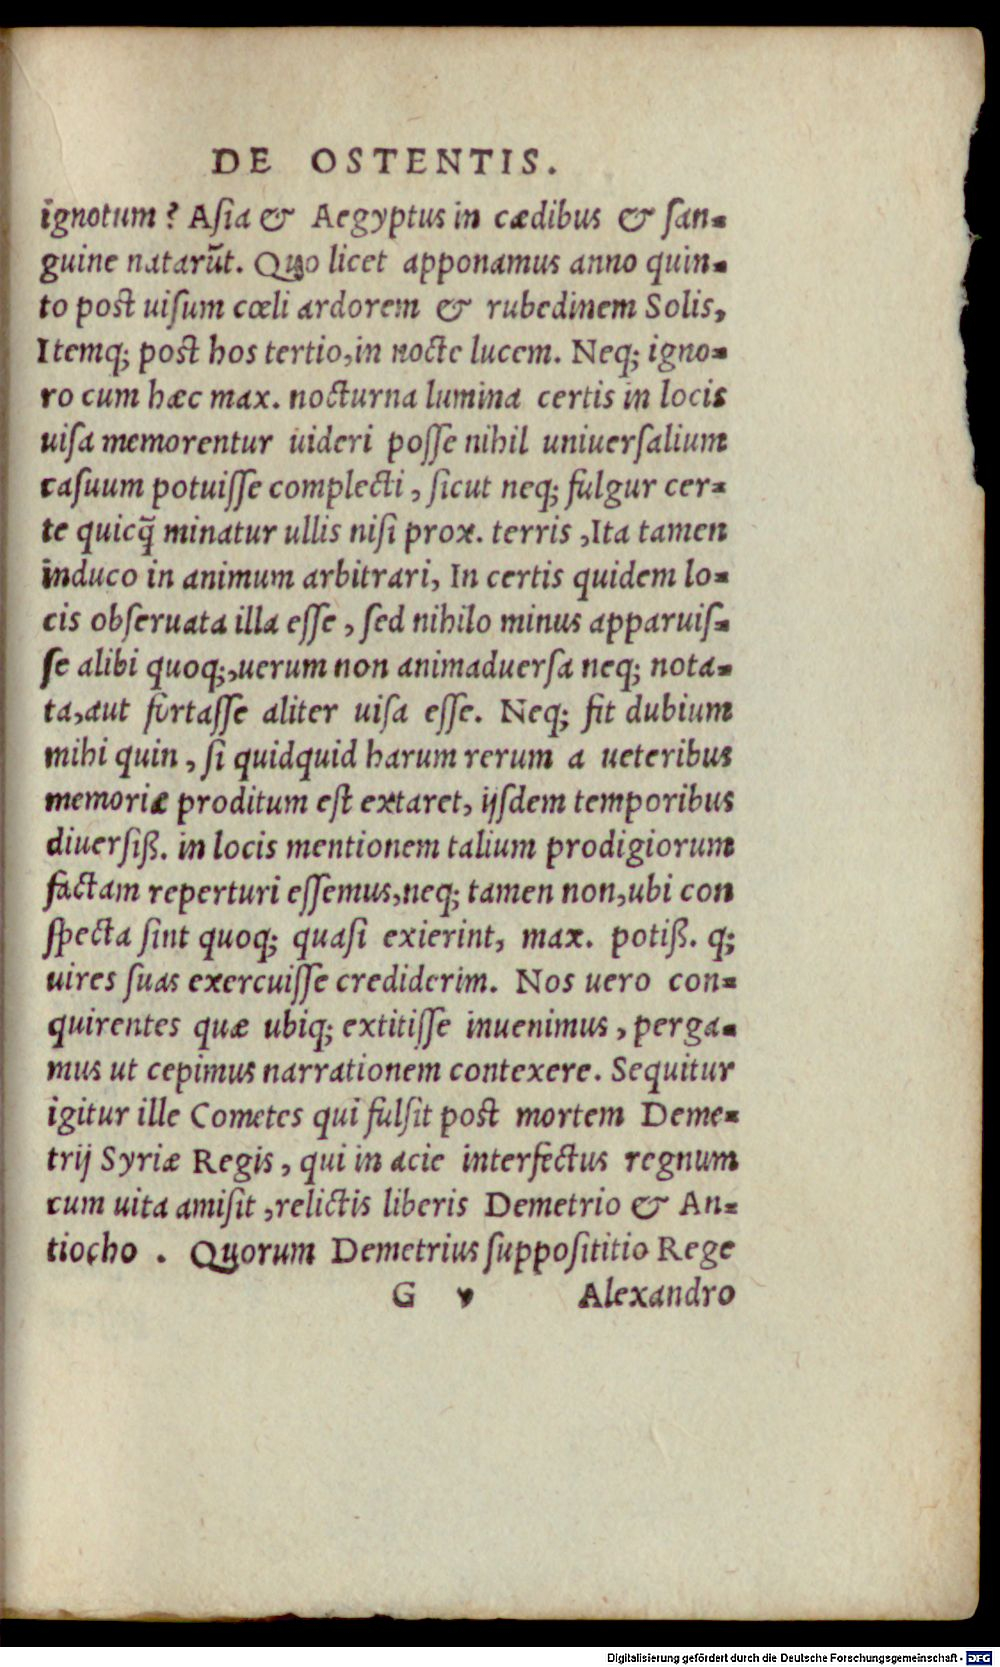 DE OSTENTIS.
ignotum? Asia & Aegyptus in cædibus & san-
guine natarūt. Quo licet apponamus anno quin-
to post uisum cœli ardorem & rubedinem Solis,
Itemq; post hos tertio, in nocte lucem. Neq; igno-
ro cum hæc max. nocturna lumina certis in locis
uisa memorentur uideri posse nihil uniuersalium
casuum potuisse complecti, sicut neq; fulgur cer-
te quicq̃ minatur ullis nisi prox. terris, Ita tamen
induco in animum arbitrari, In certis quidem lo-
cis obseruata illa esse, sed nihilo minus apparuis-
se alibi quoq;, uerum non animaduersa neq; nota-
ta, aut fortasse aliter uisa esse. Neq; fit dubium
mihi quin, si quidquid harum rerum a ueteribus
memoriæ proditum est extaret, ijsdem temporibus
diuersiß. in locis mentionem talium prodigiorum
factam reperturi essemus, neq; tamen non, ubi con
specta sint quoq; quasi exierint, max. potiß. q;
uires suas exercuisse crediderim. Nos uero con-
quirentes quæ ubiq; extitisse inuenimus, perga-
mus ut cepimus narrationem contexere. Sequitur
igitur ille Cometes qui fulsit post mortem Deme-
trij Syriæ Regis, qui in acie interfectus regnum
cum uita amisit, relictis liberis Demetrio & An-
tiocho. Quorum Demetrius supposititio Rege
G v Alexandro
Digitalisierung gefördert durch die Deutsche Forschungsgemeinschaft - DFG